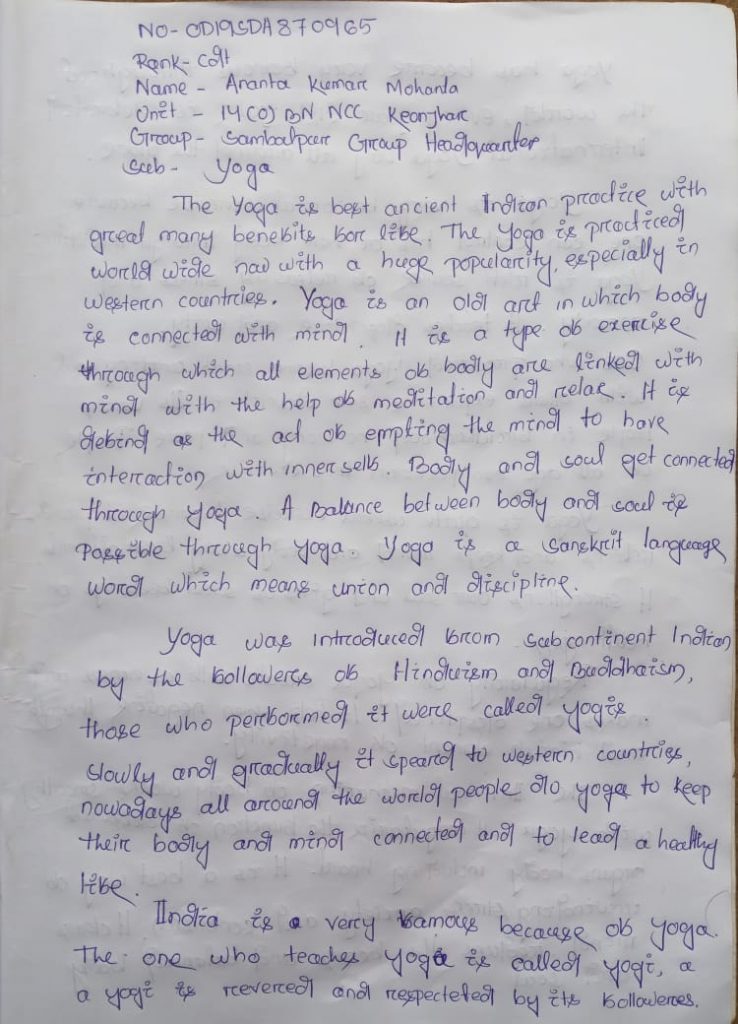 NO- OD19SDA870965
Rank- Cdt
Name - Ananta Kumar Mohanta
Unit - 14(O) BN NCC Keonjhar
Group - Sambalpur Group Headquarter
Sub - Yoga
The Yoga is best ancient Indian practice with
great many benefits for life. The Yoga is practiced
world wide naw with a huge popularity, especially in
western countries. Yoga is an old art in which body
is connected with mind. It is a type of exercise
through which all elements of body are linked with
mind with the help of meditation and relax. It is
defind as the act of empting the mind to have
interaction with inner self. Body and soul get connected
through yoga. A Balance between body and soul is
Possible through yoga. Yoga is a sanskrit language
word which means union and discipline.
Yoga was introduced from subcontinent Indian
by the followers of Hinduism and Buddhaism,
those who performed it were called yogis.
Slowly and gradually it speard to western countries,
nowadays all around the world people do yoga to keep
their body and mind connected and to lead a healthy
life.
India is a very famous because of yoga.
The one who teaches yoga is called yogi, a
a yogi is revered and respecteted by its followeres.